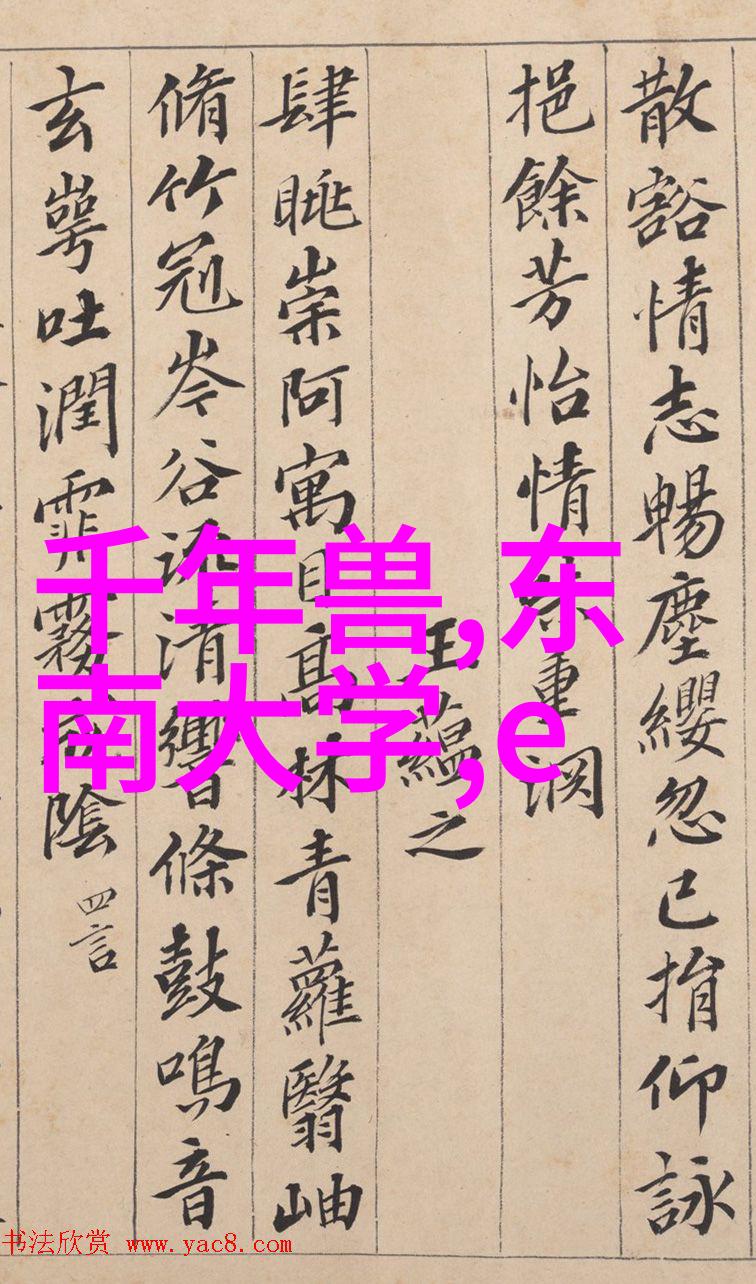 散豁情志暢塵纓忽已捐仰詠
挹餘芳怡情味重渊
王蘊之
肆眺崇阿寓目高林青蘿翳岫
脩竹冠岑谷流清響條鼓鳴音
玄崿吐潤霏霧成陰 四言
千年兽,东
南大学,e
书法欣赏 www.yac8.com